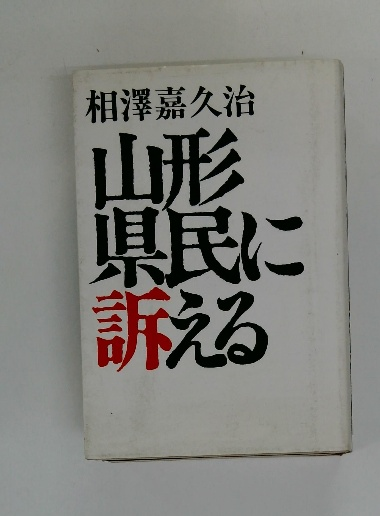 相澤嘉久治
山形
県民に
訴える